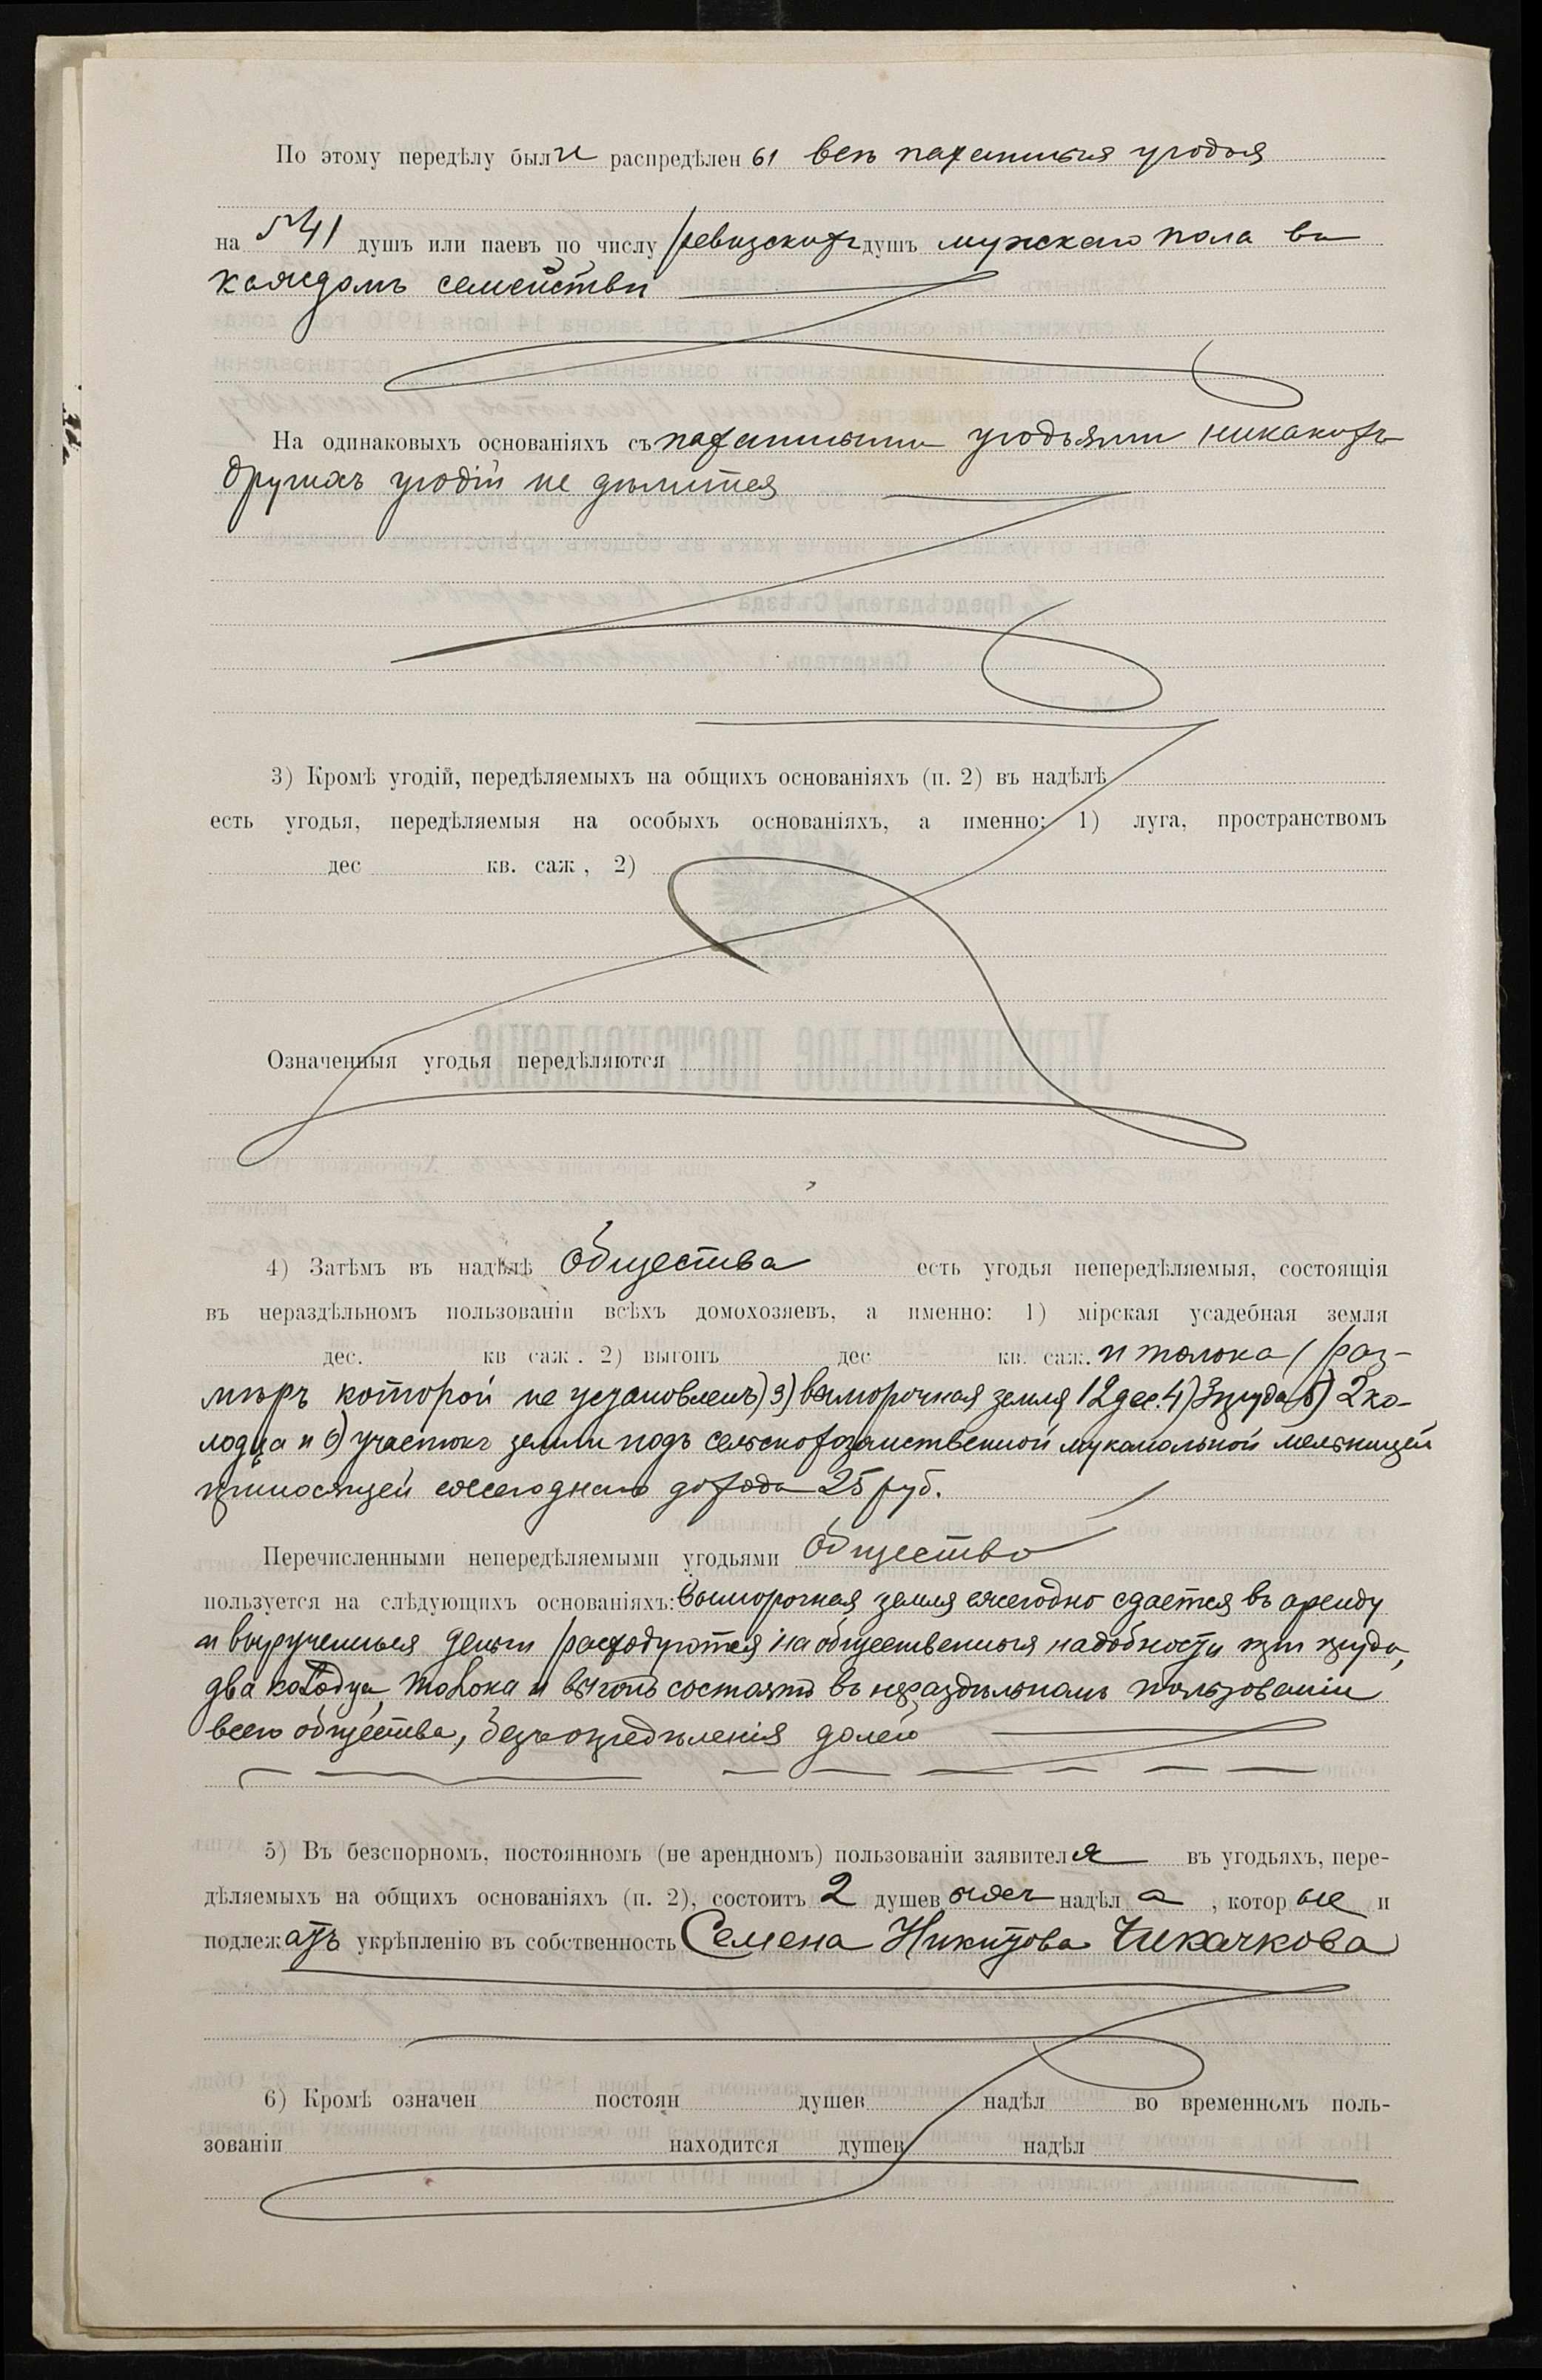 По этому передѣлу были распредѣлены всѣ пахатныя угодья
на 541 душъ или паевъ по числу ревизскихъ душъ мужскаго пола въ
каждомъ семействѣ
На одинаковыхъ основаніяхъ съ пахатными угодьями никакихъ
другихъ угодій не дѣлится
3) Кромѣ угодій, передѣляемыхъ на общихъ основаніяхъ (п. 2) въ надѣлѣ
есть угодья, передѣляемыя на особыхъ основаніяхъ, а именно: 1) луга, пространствомъ
дес кв. саж, 2)
Означенныя угодья передѣляются
4) Затѣмъ въ надѣлѣ общества есть угодья непередѣляемыя, состоящія
въ нераздѣльномъ пользованіи всѣхъ домохозяевъ, а именно: 1) мірская усадебная земля
дес. кв саж. 2) выгонъ дес кв. саж. и толока (раз-
мѣръ которой не установленъ) 3) выморочная земля 12 дес. 4) 3 пруда 5) 2 ко-
лодца и 6) участокъ земли подъ сельскохозяйственной мукомольной мельницей
приносящей ежегоднаго дохода 25 руб.
Перечисленными непередѣляемыми угодьями общество
пользуется на слѣдующихъ основаніяхъ: выморочная земля ежегодно сдается въ аренду
и вырученныя деньги расходуются на общественныя надобности три пруда,
два колодца, толока и выгонъ состоятъ въ нераздѣльномъ пользованіи
всего общества, безъ опредѣленія долей
5) Въ безспорномъ, постоянномъ (не арендномъ) пользованіи заявителя въ угодьяхъ, пере-
дѣляемыхъ на общихъ основаніяхъ (п. 2), состоитъ 2 душевыхъ надѣла, которые и
подлежатъ укрѣпленію въ собственность Семена Никитова Чикачкова
6) Кромѣ означен постоян душев надѣл во временномъ поль-
зованіи находится душев надѣл